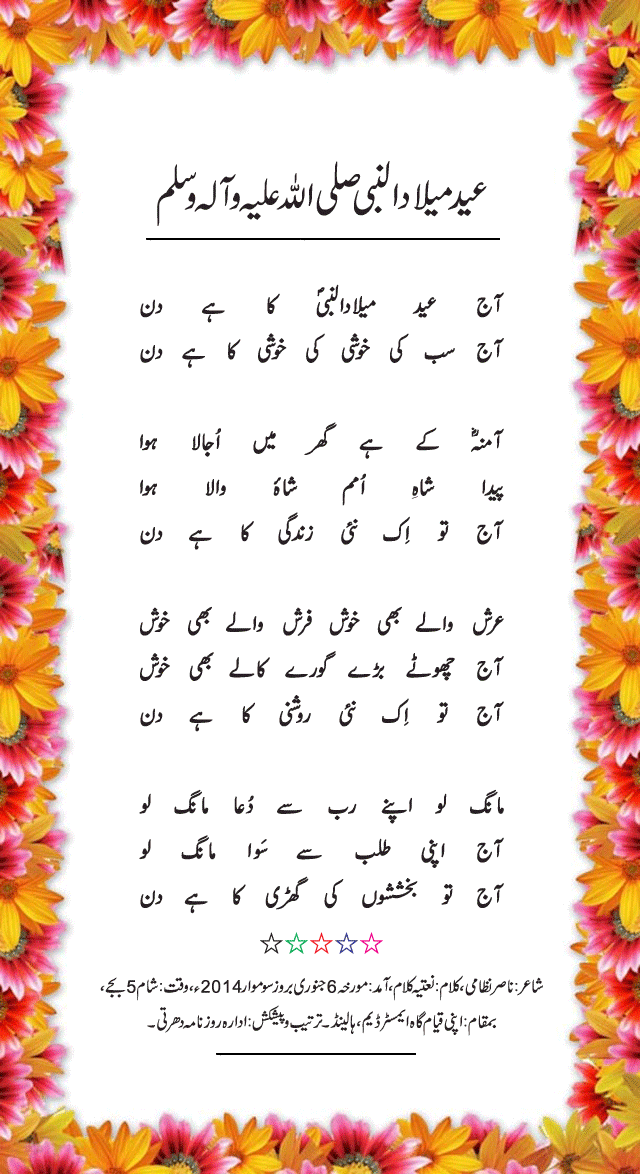 عید میلادالنبی صلی اللہ علیہ وآلہ وسلم
آج عید میلادالنبیؐ کا ہے دن
آج سب کی خوشی کی خوشی کا ہے دن
آمنہؓ کے ہے گھر میں اُجالا ہوا
پیدا شاہِ اُمم شاۂ والا ہوا
آج تو اِک نئی زندگی کا ہے دن
عرش والے بھی خوش فرش والے بھی خوش
آج چھوٹے بڑے گورے کالے بھی خوش
آج تو اِک نئی روشنی کا ہے دن
مانگ لو اپنے رب سے دُعا مانگ لو
آج اپنی طلب سے سَوا مانگ لو
آج تو بخششوں کی گھڑی کا ہے دن
شاعر: ناصر نظامی، کلام: نعتیہ کلام، آمد: مورخہ 6 جنوری بروز سوموار 2014ء، وقت: شام 5 بجے،
بمقام: اپنی قیام گاہ ایمسٹرڈیم، ہالینڈ۔ ترتیب و پیشکش: ادارہ روزنامہ دھرتی۔